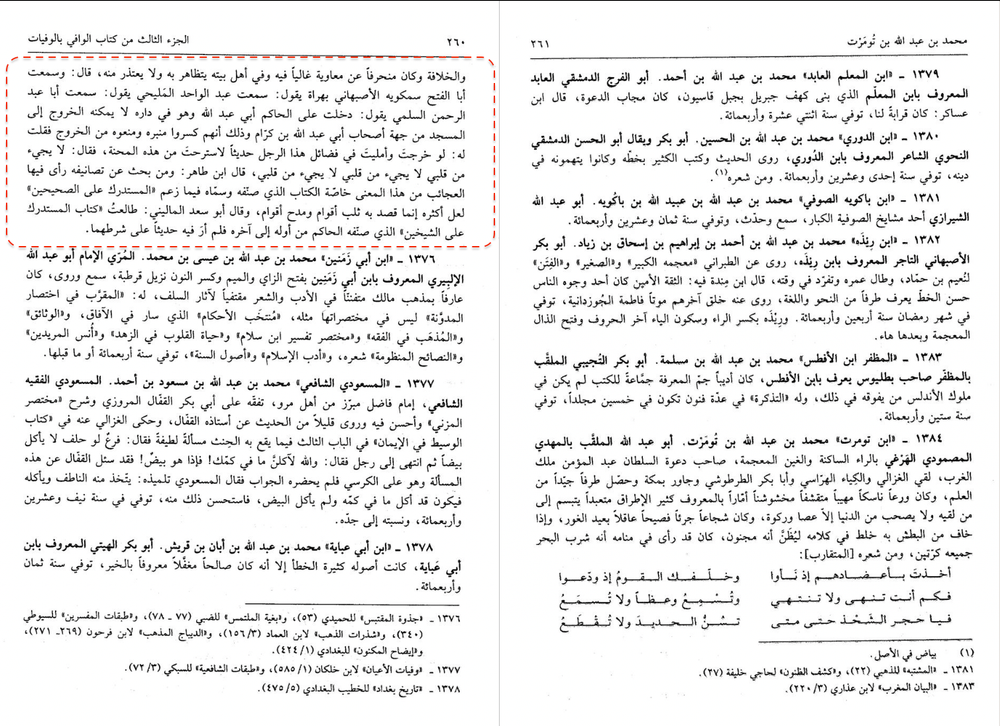 ٢٦٠ الجزء الثالث من كتاب الوافي بالوفيات
والخلافة وكان منحرفاً عن معاوية غالياً فيه وفي أهل بيته يتظاهر به ولا يعتذر منه، قال: وسمعت
أبا الفتح سمكويه الأصبهاني بهراة يقول: سمعت عبد الواحد المَليحي يقول: سمعت أبا عبد
الرحمن السلمي يقول: دخلت على الحاكم أبي عبد الله وهو في داره لا يمكنه الخروج إلى
المسجد من جهة أصحاب أبي عبد الله بن كرّام وذلك أنهم كسروا منبره ومنعوه من الخروج فقلت
له: لو خرجتَ وأمليتَ في فضائل هذا الرجل حديثاً لاسترحتَ من هذه المحنة، فقال: لا يجيء
من قلبي لا يجيء من قلبي لا يجيء من قلبي، قال ابن طاهر: ومن بحث عن تصانيفه رأى فيها
العجائب من هذا المعنى خاصّة الكتاب الذي صنّفه وسمّاه فيما زعم «المستدرك على الصحيحين»
لعل أكثره إنما قصد به ثلب أقوام ومدح أقوام، وقال أبو سعد الماليني: طالعتُ «كتاب المستدرك
على الشيخين» الذي صنّفه الحاكم من أوله إلى آخره فلم أرَ فيه حديثاً على شرطهما.
١٣٧٦ ـ «ابن أبي زَمَنين» محمد بن عبد الله بن عيسى بن محمد. المُرّي الإمام أبو عبد الله
الإلبيري المعروف بابن أبي زَمَنِين بفتح الزاي والميم وكسر النون نزيل قرطبة، سمع وروى، كان
عارفاً بمذهب مالك متفنّناً في الأدب والشعر مقتفياً لآثار السلف، له: «المقرّب في اختصار
المدوَّنة» ليس في مختصراتها مثله، «مُنتخَب الأحكام» الذي سار في الآفاق، و«الوثائق»
و«المُذهَب في الفقه» و«مختصر تفسير ابن سلام» و«حياة القلوب في الزهد» و«أُنس المريدين»
و«النصائح المنظومة» شعره، و«أدب الإسلام» و«أصول السنة»، توفي سنة أربعمائة أو ما قبلها.
١٣٧٧ ـ «المسعودي الشافعي» محمد بن عبد الله بن مسعود بن أحمد. المسعودي الفقيه
الشافعي، إمام فاضل مبرّز من أهل مرو، تفقّه على أبي بكر القفّال المروزي وشرح «مختصر
المزني» وأحسن فيه وروى قليلاً من الحديث عن أستاذه القفّال، وحكى الغزالي عنه في «كتاب
الوسيط في الإيمان» في الباب الثالث فيما يقع به الحِنث مسألةً لطيفةً فقال: فرعٌ لو حلف لا يأكل
بيضاً ثم انتهى إلى رجل فقال: والله لآكلنَّ ما في كمّك! فإذا هو بيضٌ! فقد سئل القفّال عن هذه
المسألة وهو على الكرسي فلم يحضره الجواب فقال المسعودي تلميذه: يتّخذ منه الناطف ويأكله
فيكون قد أكل ما في كمّه ولم يأكل البيض، فاستحسن ذلك منه، توفي في سنة نيف وعشرين
وأربعمائة، ونسبته إلى جدّه.
١٣٧٨ ـ «ابن أبي عباية» محمد بن عبد الله بن أبان بن قريش. أبو بكر الهيتي المعروف بابن
أبي عَباية، كانت أصوله كثيرة الخطأ إلا أنه كان صالحاً مغفَّلاً معروفاً بالخير، توفي سنة ثمان
وأربعمائة.
١٣٧٦ ـ «جذوة المقتبس» للحميدي (٥٣)، و«بغية الملتمس» للضبي (٧٧ ـ ٧٨)، و«طبقات المفسرين» للسيوطي
(٣٤٠)، و«شذرات الذهب» لابن العماد (١٥٦/٣)، و«الديباج المذهب» لابن فرحون (٢٦٩ـ ٢٧١)،
و«إيضاح المكنون» للبغدادي (٤٢٤/١).
١٣٧٧ ـ «وفيات الأعيان» لابن خلكان (٥٨٥/١)، و«طبقات الشافعية» للسبكي (٧٢/٣).
١٣٧٨ ـ «تاريخ بغداد» للخطيب البغدادي (٤٧٥/٥).
محمد بن عبد الله بن تُومَرْت ٢٦١
١٣٧٩ ـ «ابن المعلم العابد» محمد بن عبد الله بن أحمد. أبو الفرج الدمشقي العابد
المعروف بابن المعلّم الذي بنى كهف جبريل بجبل قاسيون، كان مجاب الدعوة، قال ابن
عساكر: كان قرابةً لنا، توفي سنة اثنتي عشرة وأربعمائة.
١٣٨٠ ـ «ابن الدوري» محمد بن عبد الله بن الحسين. أبو بكر ويقال أبو الحسن الدمشقي
النحوي الشاعر المعروف بابن الدُوري، روى الحديث وكتب الكثير بخطّه وكانوا يتهمونه في
دينه، توفي سنة إحدى وعشرين وأربعمائة. ومن شعره(١).
١٣٨١ ـ «ابن باكويه الصوفي» محمد بن عبد الله بن عبيد الله بن باكُويه. أبو عبد الله
الشيرازي أحد مشايخ الصوفية الكبار، سمع وحدّث، وتوفي سنة ثمان وعشرين وأربعمائة.
١٣٨٢ ـ «ابن رِيْذَه» محمد بن عبد الله بن أحمد بن إبراهيم بن إسحاق بن زياد. أبو بكر
الأصبهاني التاجر المعروف بابن رِيْذَه، روى عن الطبراني «معجمه الكبير» و«الصغير» و«الفِتَن»
لنُعيم بن حمّاد، وطال عمره وتفرّد في وقته، قال ابن مِندة فيه: الثقة الأمين كان أحد وجوه الناس
حسن الخطّ يعرف طرفاً من النحو واللغة، روى عنه خلق آخرهم موتاً فاطمة الجُوزدانية، توفي
في شهر رمضان سنة أربعين وأربعمائة. ورِيْذَه بكسر الراء وسكون الياء آخر الحروف وفتح الذال
المعجمة وبعدها هاء.
١٣٨٣ ـ «المظفر ابن الأفطس» محمد بن عبد الله بن مسلمة. أبو بكر التُجيبي الملقَّب
بالمظفّر صاحب بطليوس يعرف بابن الأفطس، كان أديباً جمّ المعرفة جمَّاعةً للكتب لم يكن في
ملوك الأندلس من يفوقه في ذلك، وله «التذكرة» في عدّة فنون تكون في خمسين مجلداً، توفي
سنة ستين وأربعمائة.
١٣٨٤ ـ «ابن تومرت» محمد بن عبد الله بن تُومَرْت. أبو عبد الله الملقّب بالمهدي
المصمودي الهَرْغي بالراء الساكنة والغين المعجمة، صاحب دعوة السلطان عبد المؤمن ملك
الغرب، لقي الغزالي والكِياء الهرّاسي وأبا بكر الطرطوشي وجاور بمكة وحصّل طرفاً جيّداً من
العلم، وكان ورعاً ناسكاً مهيباً متقشّفاً مخشوشناً أمّاراً بالمعروف كثير الإطراق متعبداً يتبسم إلى
من لقيه ولا يصحب من الدنيا إلاّ عصا وركوة، وكان شجاعاً جرئاً فصيحاً عاقلاً بعيد الغور، وإذا
خاف من البطش به خلط في كلامه ليُظَنّ أنه مجنون، كان قد رأى في منامه أنه شرب البحر
جميعه كرّتين، ومن شعره [المتقارب]:
أخـذتَ بـأعـضـادهـم إذ نَـأوا وخـلّـفـك الـقـومُ إذ ودّعـوا
فـكـم أنـت تـنـهـى ولا تـنـتـهـي وتُـسْـمِـعُ وعـظـاً ولا تُـسـمَـعُ
فـيـا حـجـر الـشَـحْـذ حـتـى مـتـى تـسُـنّ الـحـديـدَ ولا تُـقْـطَـعُ
(١) بياض في الأصل.
١٣٨١ ـ «المشتبه» للذهبي (٢٢)، و«كشف الظنون» لحاجي خليفة (٢٧).
١٣٨٣ ـ «البيان المغرب» لابن عذاري (٢٢٠/٣).